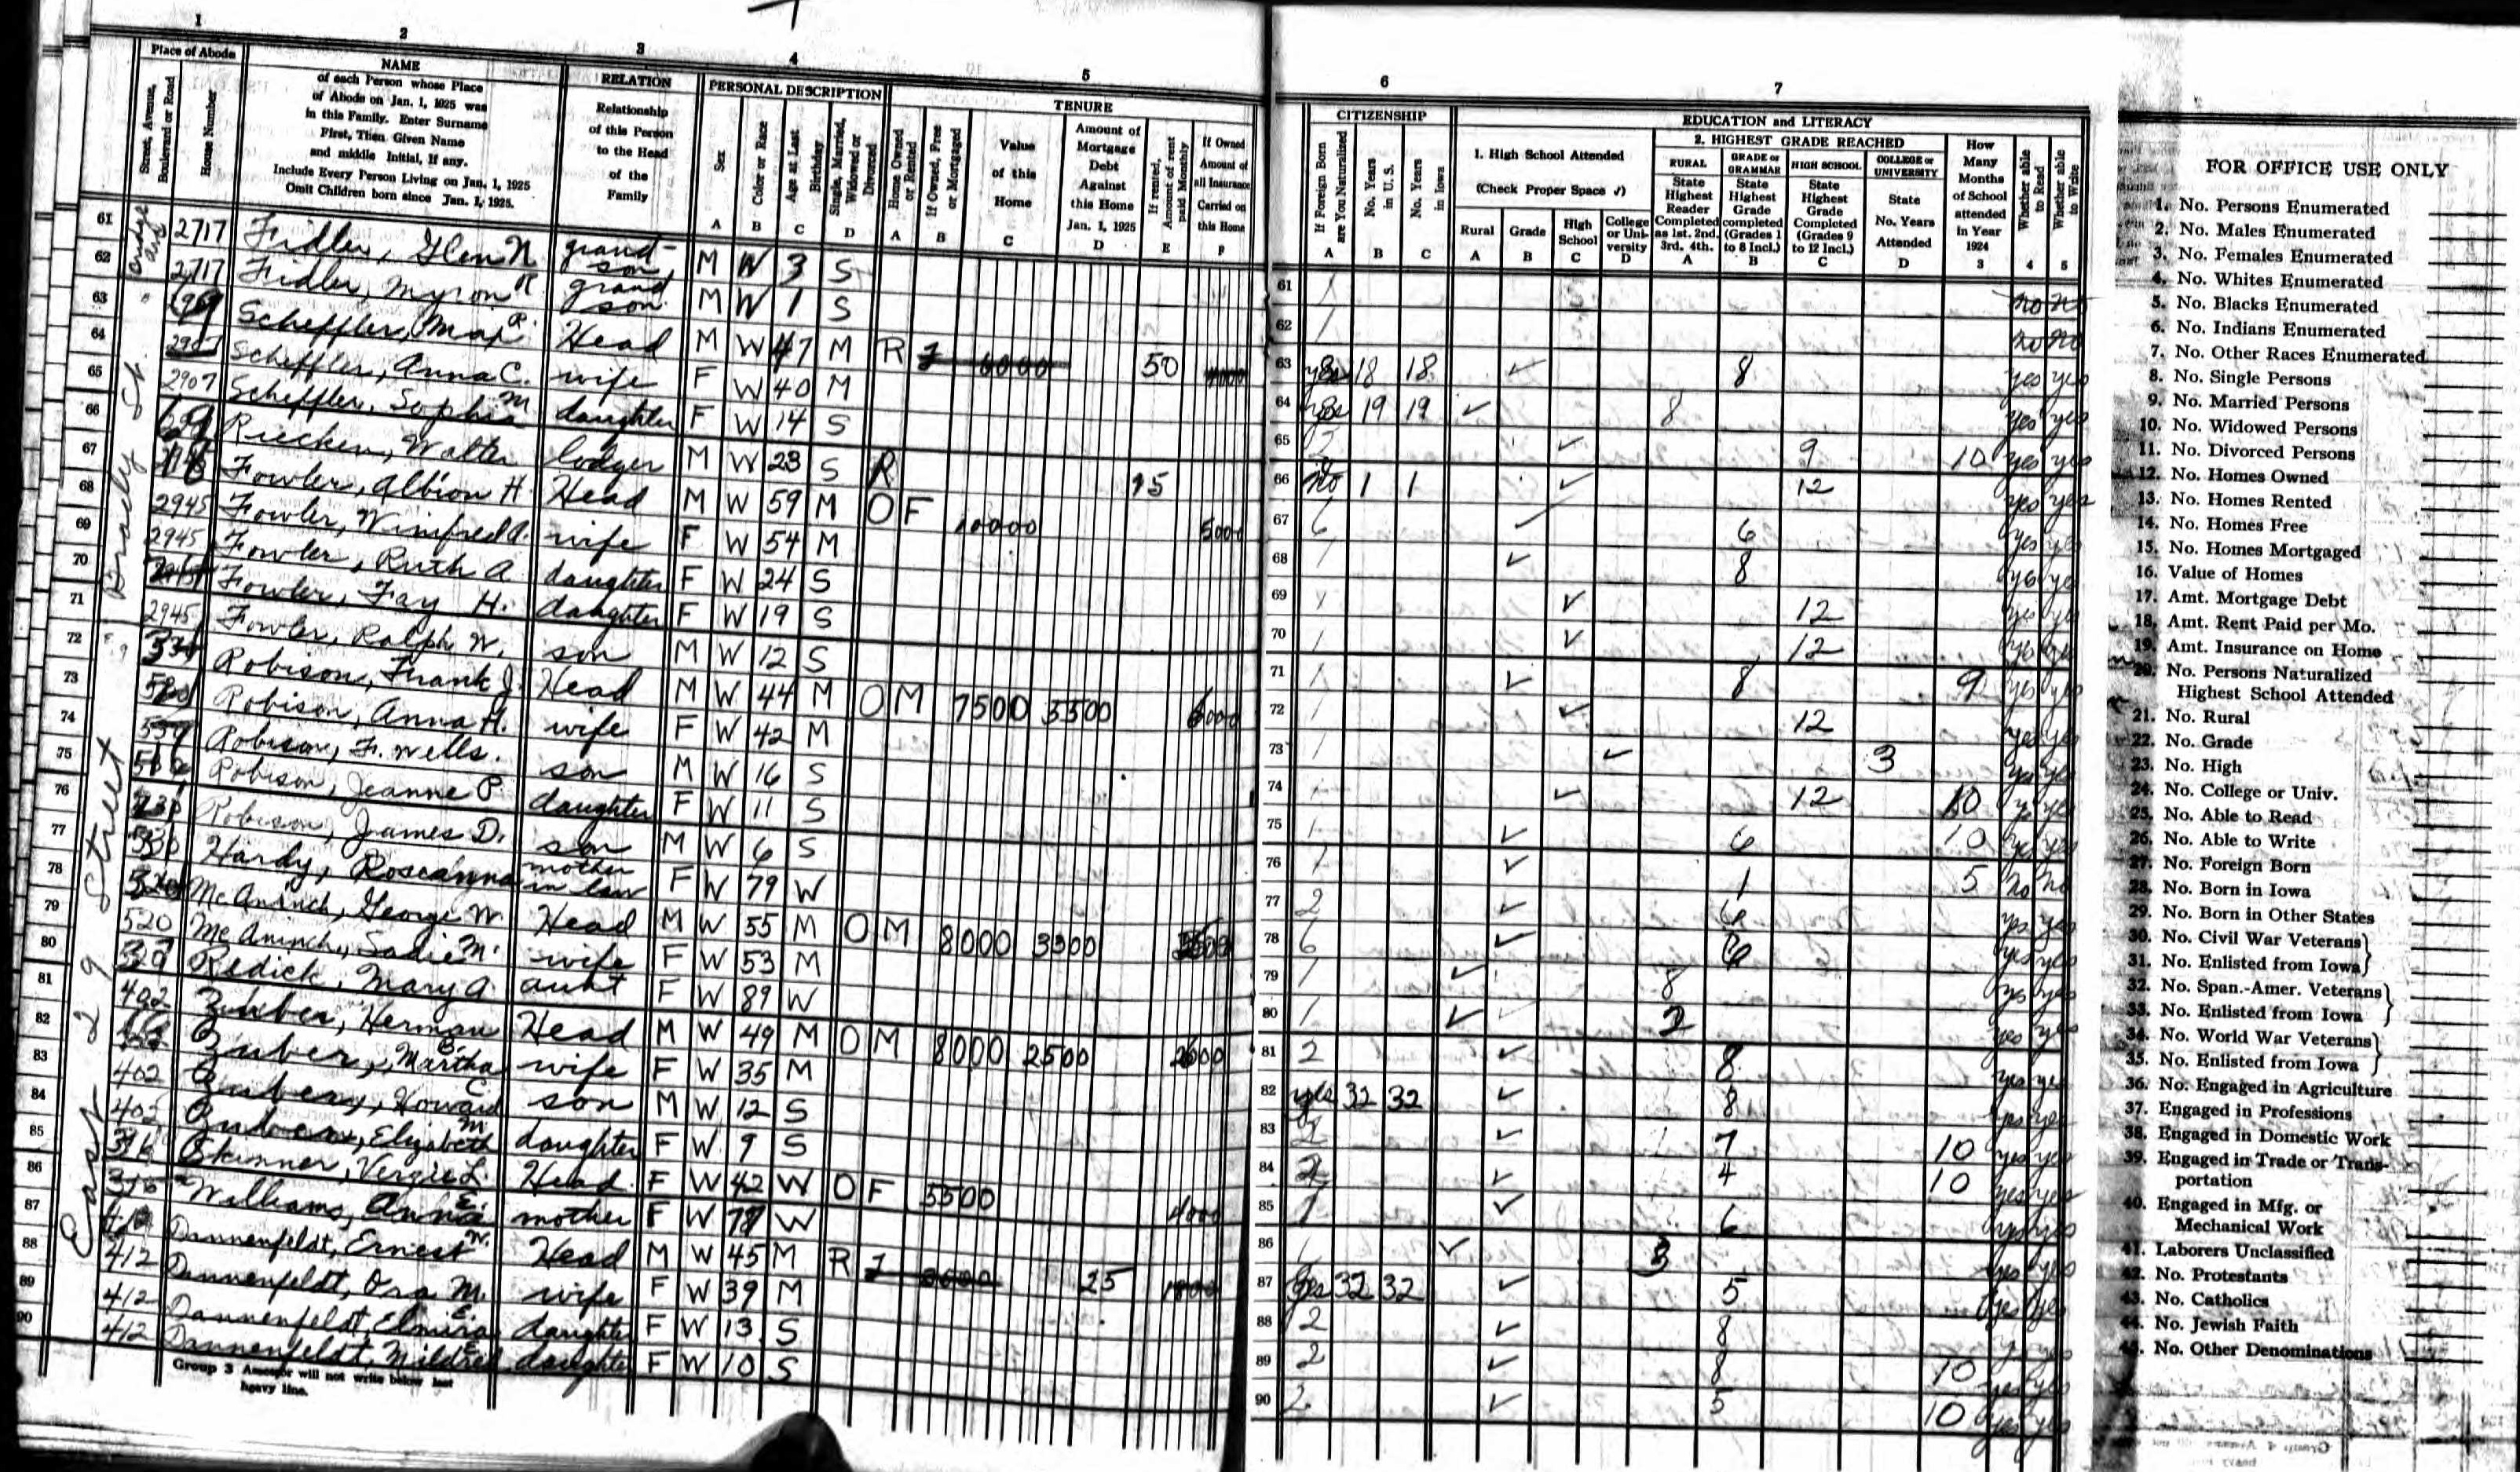 1 2 3 4 5
Place of Abode
Street, Avenue, Boulevard or Road
House Number
NAME
of each Person whose Place
of Abode on Jan. 1, 1925 was
in this Family. Enter Surname
First, Then Given Name
and middle Initial, if any.
Include Every Person Living on Jan. 1, 1925
Omit Children born since Jan. 1, 1925.
RELATION
Relationship
of this Person
to the Head
of the
Family
PERSONAL DESCRIPTION
Sex
Color or Race
Age at Last Birthday
Single, Married, Widowed or Divorced
A B C D
TENURE
Home Owned or Rented
If Owned, Free or Mortgaged
Value
of this
Home
Amount of
Mortgage
Debt
Against
this Home
Jan. 1, 1925
If rented, Amount of rent paid Monthly
If Owned
Amount of
all Insurance
Carried on
this Home
A B C D E F
Brady St.
East 29 Street
61 2717 Fidler, Glen N grandson M W 3 S
62 2717 Fidler, Myron R. grandson M W 1 S
63 Scheffler, Max R. Head M W 47 M R 50
64 2907 Scheffler, Anna C. wife F W 40 M
65 2907 Scheffler, Sophia M daughter F W 14 S
66 Riecken, Walter lodger M W 23 S R 15
67 Fowler, Albion H. Head M W 59 M O F 10000 5000
68 2945 Fowler, Winifred A. wife F W 54 M
69 2945 Fowler, Ruth A daughter F W 24 S
70 Fowler, Fay H. daughter F W 19 S
71 2945 Fowler, Ralph W. son M W 12 S
72 Robison, Frank J. Head M W 44 M O M 7500 3500 6000
73 Robison, Anna H. wife F W 42 M
74 Robison, F. Wells. son M W 16 S
75 Robison, Jeanne P. daughter F W 11 S
76 Robison, James D. son M W 6 S
77 Hardy, Roseanna mother in law F W 79 W
78 McAninch, George W. Head M W 55 M O M 8000 3300
79 520 McAninch, Sadie M. wife F W 53 M
80 Redick, Mary A. aunt F W 89 W
81 402 Zuber, Herman Head M W 49 M O M 8000 2500
82 Zuber, Martha B. wife F W 35 M
83 402 Zuber, Howard C son M W 12 S
84 402 Zuber, Elizabeth M daughter F W 9 S
85 Skinner, Vergie L. Head F W 42 W O F 5500 4000
86 Williams, Anna E. mother F W W
87 Dannenfeldt, Ernest W. Head M W 45 M R 25
88 412 Dannenfeldt, Ora M. wife F W 39 M
89 412 Dannenfeldt, Elmira E. daughter F W 13 S
90 412 Dannenfeldt, Mildred E daughter F W 10 S
Group 3 Assessor will not write below last
heavy line.
6 7
CITIZENSHIP
If Foreign Born are You Naturalized
No. Years in U. S.
No. Years in Iowa
A B C
EDUCATION and LITERACY
1. High School Attended
(Check Proper Space √)
Rural Grade High School College or University
A B C D
2. HIGHEST GRADE REACHED
RURAL
State Highest Reader Completed as 1st. 2nd. 3rd. 4th.
A
GRADE or GRAMMAR
State Highest Grade completed (Grades 1 to 8 Incl.)
B
HIGH SCHOOL
State Highest Grade Completed (Grades 9 to 12 Incl.)
C
COLLEGE or UNIVERSITY
State No. Years Attended
D
How Many Months of School attended in Year 1924
3
Whether able to Read
4
Whether able to Write
5
61 1 no no
62 1 no no
63 yes 18 18 ✓ 8 yes yes
64 yes 19 19 ✓ 8 yes yes
65 2 ✓ 9 10 yes yes
66 no 1 1 ✓ 12 yes yes
67 6 ✓ 6 yes yes
68 1 ✓ 8 yes yes
69 1 ✓ 12 yes yes
70 1 ✓ 12 yes yes
71 1 ✓ 8 9 yes yes
72 1 ✓ 12 yes yes
73 1 ✓ 3 yes yes
74 1 ✓ 12 10 yes yes
75 1 ✓ 6 10 yes yes
76 1 ✓ 1 5 no no
77 2 ✓ yes yes
78 6 ✓ yes yes
79 1 ✓ 8 yes yes
80 1 ✓ 2 yes yes
81 2 ✓ 8 yes yes
82 yes 32 32 ✓ 8 yes yes
83 2 ✓ 7 10 yes yes
84 2 ✓ 4 10 yes yes
85 1 ✓ 6 yes yes
86 1 ✓ 3 yes yes
87 yes 32 32 ✓ 5 yes yes
88 2 ✓ 8 yes yes
89 2 ✓ 8 10 yes yes
90 2 ✓ 5 10 yes yes
FOR OFFICE USE ONLY
1. No. Persons Enumerated
2. No. Males Enumerated
3. No. Females Enumerated
4. No. Whites Enumerated
5. No. Blacks Enumerated
6. No. Indians Enumerated
7. No. Other Races Enumerated
8. No. Single Persons
9. No. Married Persons
10. No. Widowed Persons
11. No. Divorced Persons
12. No. Homes Owned
13. No. Homes Rented
14. No. Homes Free
15. No. Homes Mortgaged
16. Value of Homes
17. Amt. Mortgage Debt
18. Amt. Rent Paid per Mo.
19. Amt. Insurance on Home
20. No. Persons Naturalized
Highest School Attended
21. No. Rural
22. No. Grade
23. No. High
24. No. College or Univ.
25. No. Able to Read
26. No. Able to Write
27. No. Foreign Born
28. No. Born in Iowa
29. No. Born in Other States
30. No. Civil War Veterans
31. No. Enlisted from Iowa
32. No. Span.-Amer. Veterans
33. No. Enlisted from Iowa
34. No. World War Veterans
35. No. Enlisted from Iowa
36. No. Engaged in Agriculture
37. Engaged in Professions
38. Engaged in Domestic Work
39. Engaged in Trade or Transportation
40. Engaged in Mfg. or
Mechanical Work
41. Laborers Unclassified
42. No. Protestants
43. No. Catholics
44. No. Jewish Faith
45. No. Other Denominations